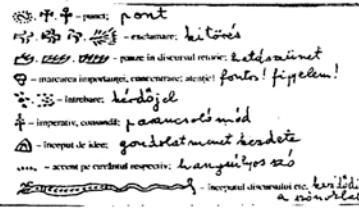 – punct; pont
– exclamare; kitörés
– pauze în discursul retoric; hatásszünet
– marcarea importanței, concentrare; atenție! fontos! figyelem!
– întrebare; kérdőjel
– imperativ, comandă; parancsoló mód
– început de idee; gondolatmenet kezdete
– accent pe cuvântul respectiv; hangsúlyos szó
– începutul discursului etc. kezdődik a szónoklat